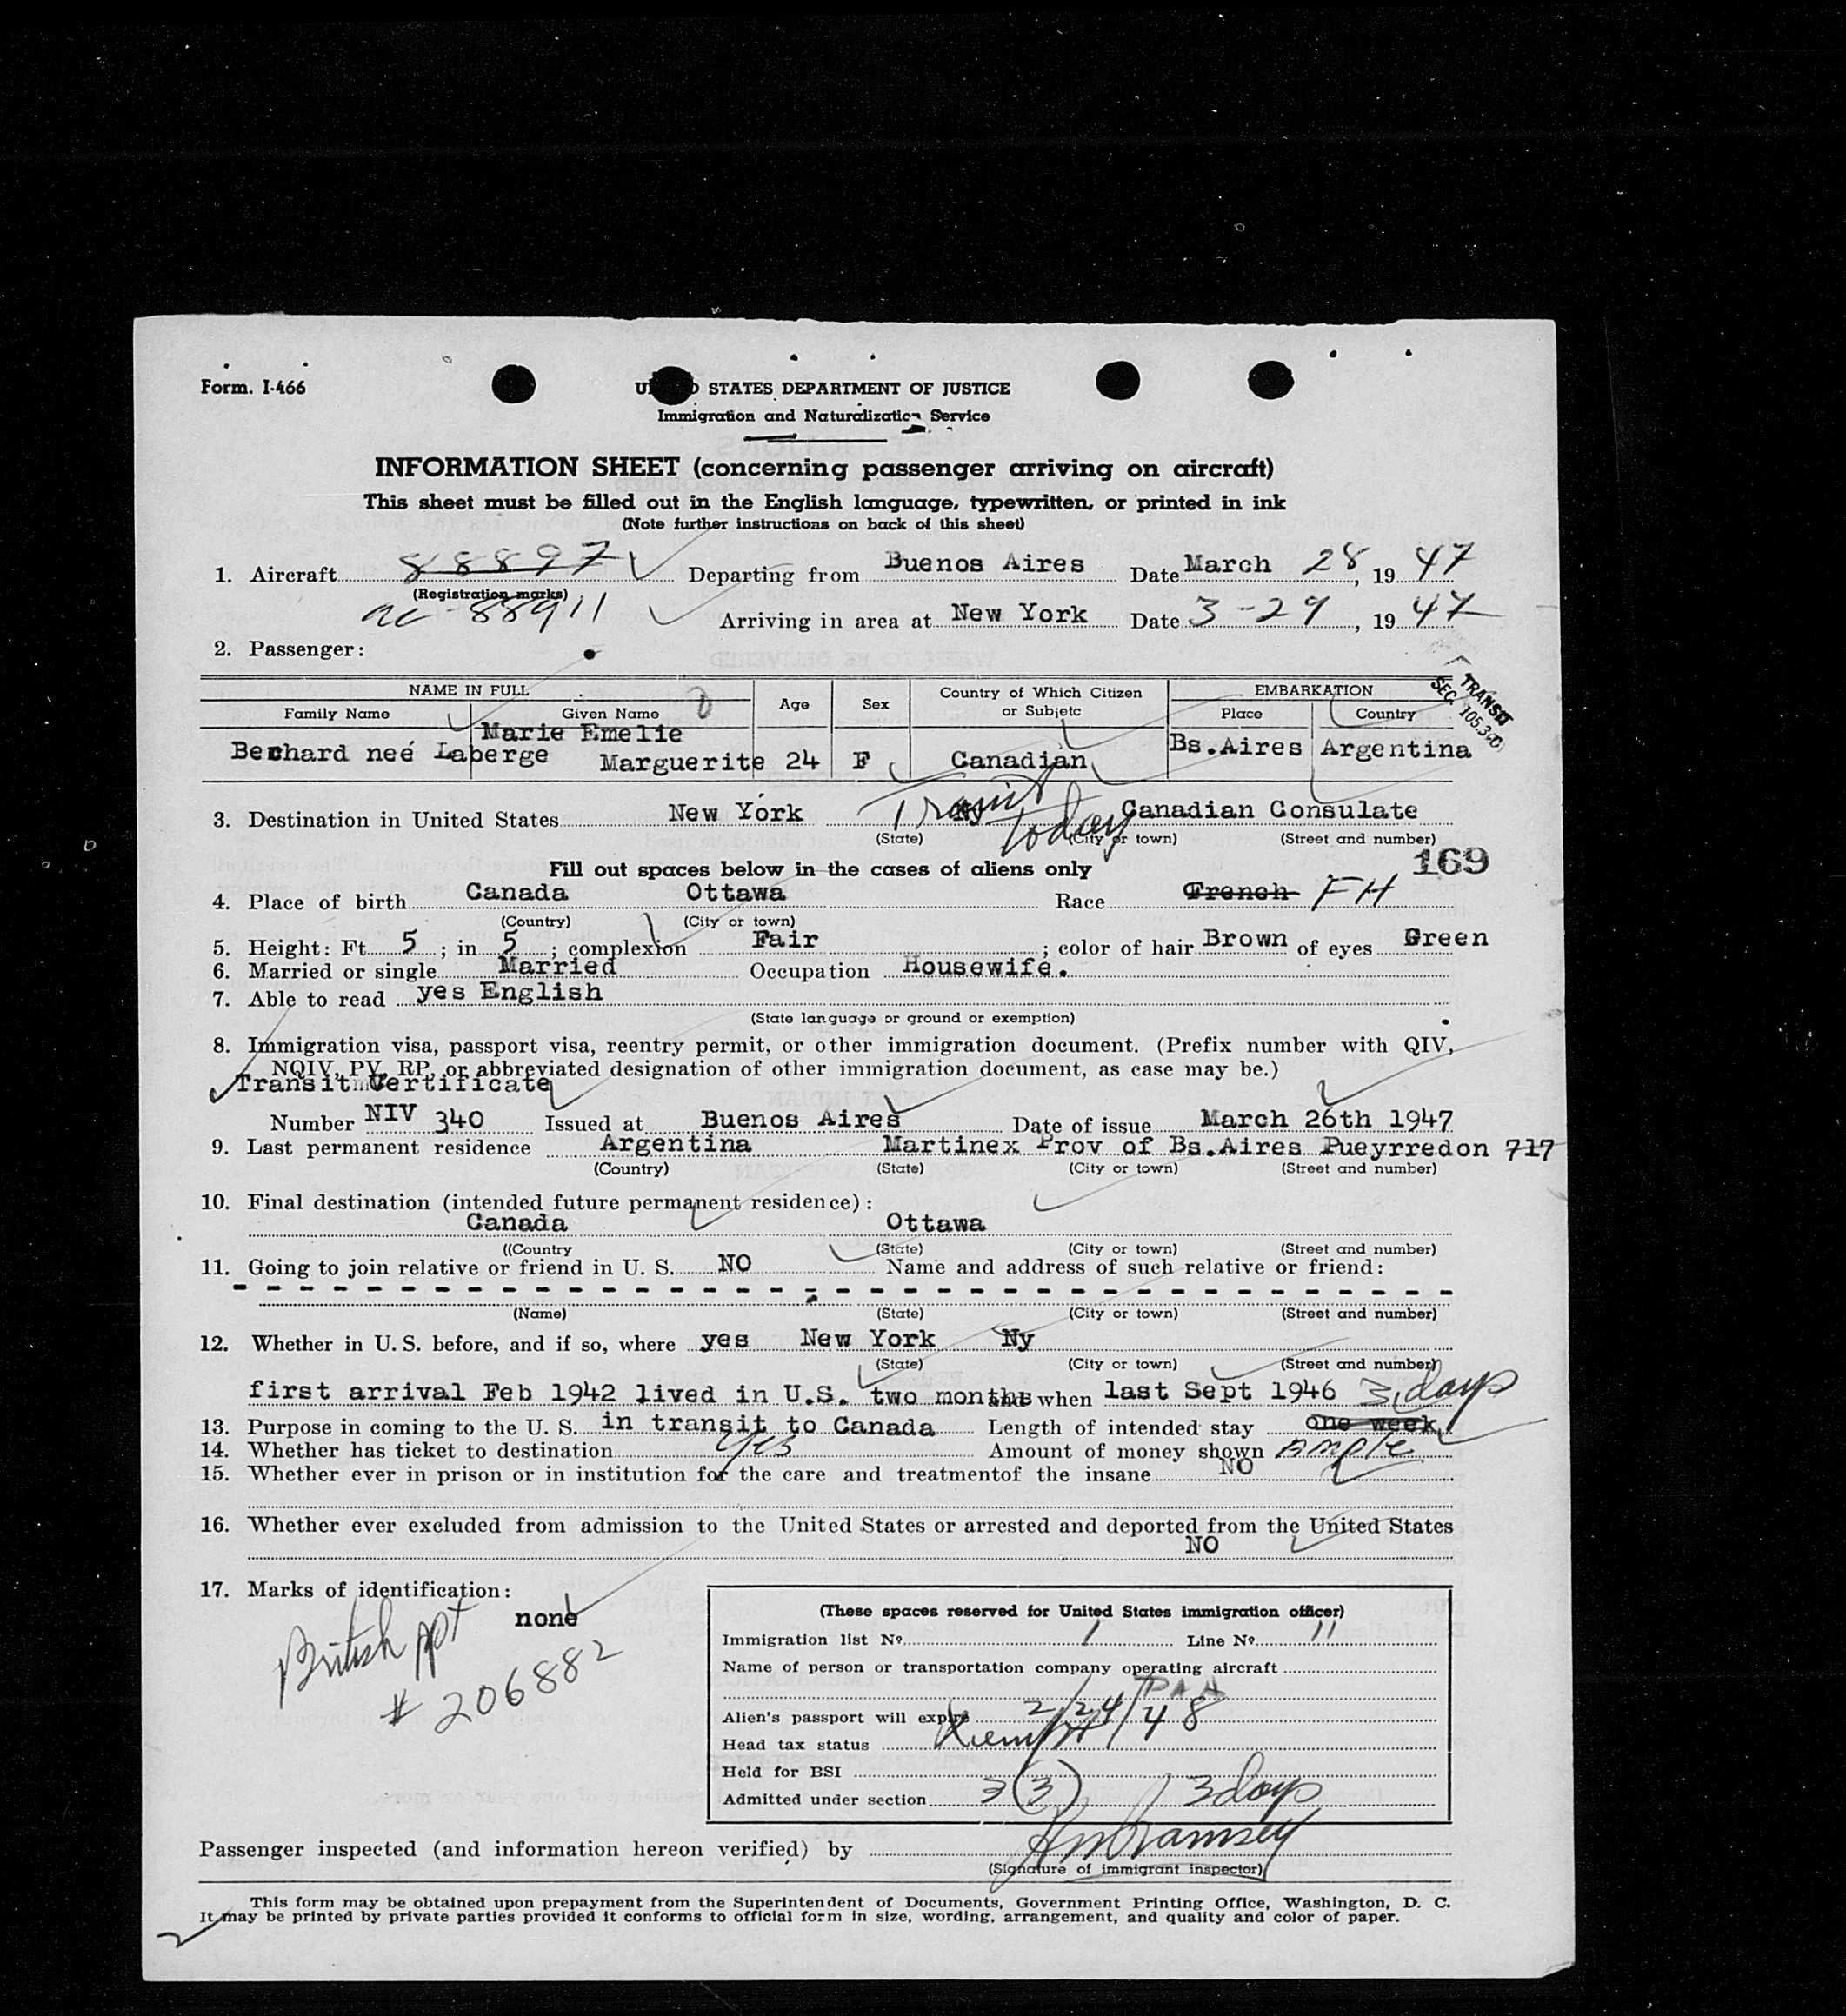 Form. I-466
STATES DEPARTMENT OF JUSTICE
Immigration and Naturalization Service
INFORMATION SHEET (concerning passenger arriving on aircraft)
This sheet must be filled out in the English language, typewritten, or printed in ink
(Note further instructions on back of this sheet)
1. Aircraft 88897 Departing from Buenos Aires Date March 28, 19 47
(Registration marks)
88911 Arriving in area at New York Date 3-29, 19 47
2. Passenger:
TRANSIT
SEC. 105.3
NAME IN FULL Age Sex Country of Which Citizen or Subjetc EMBARKATION
Family Name Given Name Place Country
Marie Emelie
Bechard neé Laberge Marguerite 24 F Canadian Bs.Aires Argentina
3. Destination in United States New York Ny Canadian Consulate
Transit today
(State) (City or town) (Street and number)
169
Fill out spaces below in the cases of aliens only
4. Place of birth Canada Ottawa Race French FH
(Country) (City or town)
5. Height: Ft 5 ; in 5 ; complexion Fair ; color of hair Brown of eyes Green
6. Married or single Married Occupation Housewife.
7. Able to read yes English
(State language or ground or exemption)
8. Immigration visa, passport visa, reentry permit, or other immigration document. (Prefix number with QIV,
NQIV, PV, RP, or abbreviated designation of other immigration document, as case may be.)
Transit Certificate
Number NIV 340 Issued at Buenos Aires Date of issue March 26th 1947
9. Last permanent residence Argentina Martinex Prov of Bs.Aires Pueyrredon 717
(Country) (State) (City or town) (Street and number)
10. Final destination (intended future permanent residence):
Canada Ottawa
((Country (State) (City or town) (Street and number)
11. Going to join relative or friend in U. S. NO Name and address of such relative or friend:
(Name) (State) (City or town) (Street and number)
12. Whether in U. S. before, and if so, where yes New York Ny
(State) (City or town) (Street and number)
first arrival Feb 1942 lived in U.S. two months and when last Sept 1946 3 days
13. Purpose in coming to the U. S. in transit to Canada Length of intended stay one week
14. Whether has ticket to destination yes Amount of money shown ample
15. Whether ever in prison or in institution for the care and treatmentof the insane NO
16. Whether ever excluded from admission to the United States or arrested and deported from the United States
NO
17. Marks of identification:
none
British ppt
# 206882
(These spaces reserved for United States immigration officer)
Immigration list No 1 Line No 11
Name of person or transportation company operating aircraft
PAA
Alien's passport will expire 2/24/48
Head tax status Exempt
Held for BSI
Admitted under section 3(3) 3 days
Passenger inspected (and information hereon verified) by Ramsey
(Signature of immigrant inspector)
This form may be obtained upon prepayment from the Superintendent of Documents, Government Printing Office, Washington, D. C.
It may be printed by private parties provided it conforms to official form in size, wording, arrangement, and quality and color of paper.